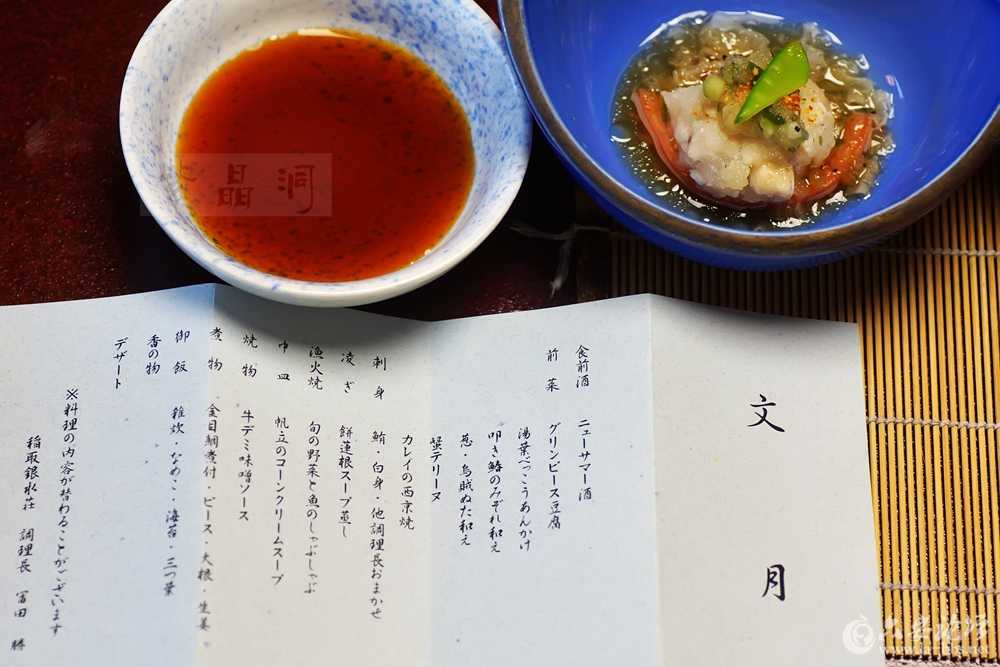 文月
食前酒 ニューサマー酒
前菜 グリンピース豆腐
湯葉べっこうあんかけ
叩き鰺のみぞれ和え
葱・烏賊ぬた和え
蟹テリーヌ
カレイの西京焼
刺身 鮪・白身・他調理長おまかせ
凌ぎ 餅蓮根スープ蒸し
漁火焼 旬の野菜と魚のしゃぶしゃぶ
中皿 帆立のコーンクリームスープ
焼物 牛デミ味噌ソース
煮物 金目鯛煮付・ピース・大根・生姜
御飯 雑炊・なめこ・海苔・三つ葉
香の物
デザート
※料理の内容が替わることがございます
稲取銀水荘 調理長 冨田 勝
晶洞